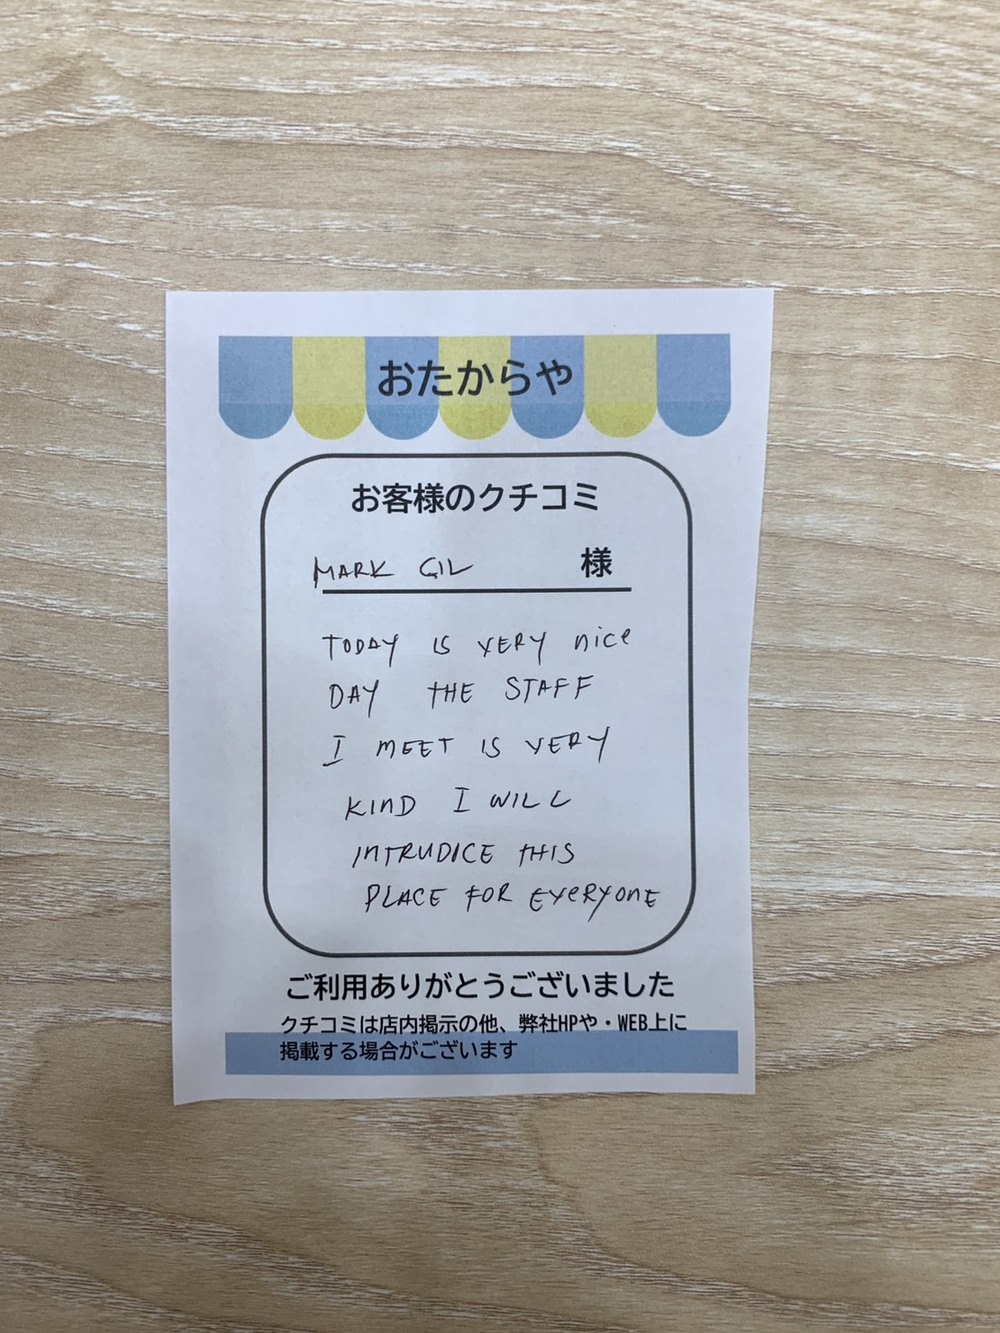 おたからや
お客様のクチコミ
MARK GIL 様
TODAY IS VERY nice
DAY THE STAFF
I MEET IS VERY
KIND I WILL
INTRUDICE THIS
PLACE FOR EVERYONE
ご利用ありがとうございました
クチコミは店内掲示の他、弊社HPや・WEB上に
掲載する場合がございます